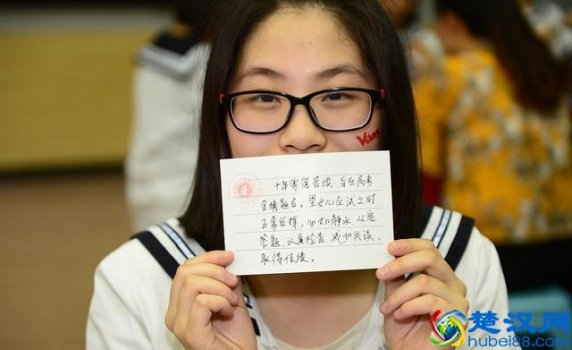 十年寒窗苦读，旨在高考
金榜题名，望女儿应试之时
正常发挥，心如静水，从容
答题，认真检查，减少失误，
取得佳绩。
楚汉网
hubei88.com